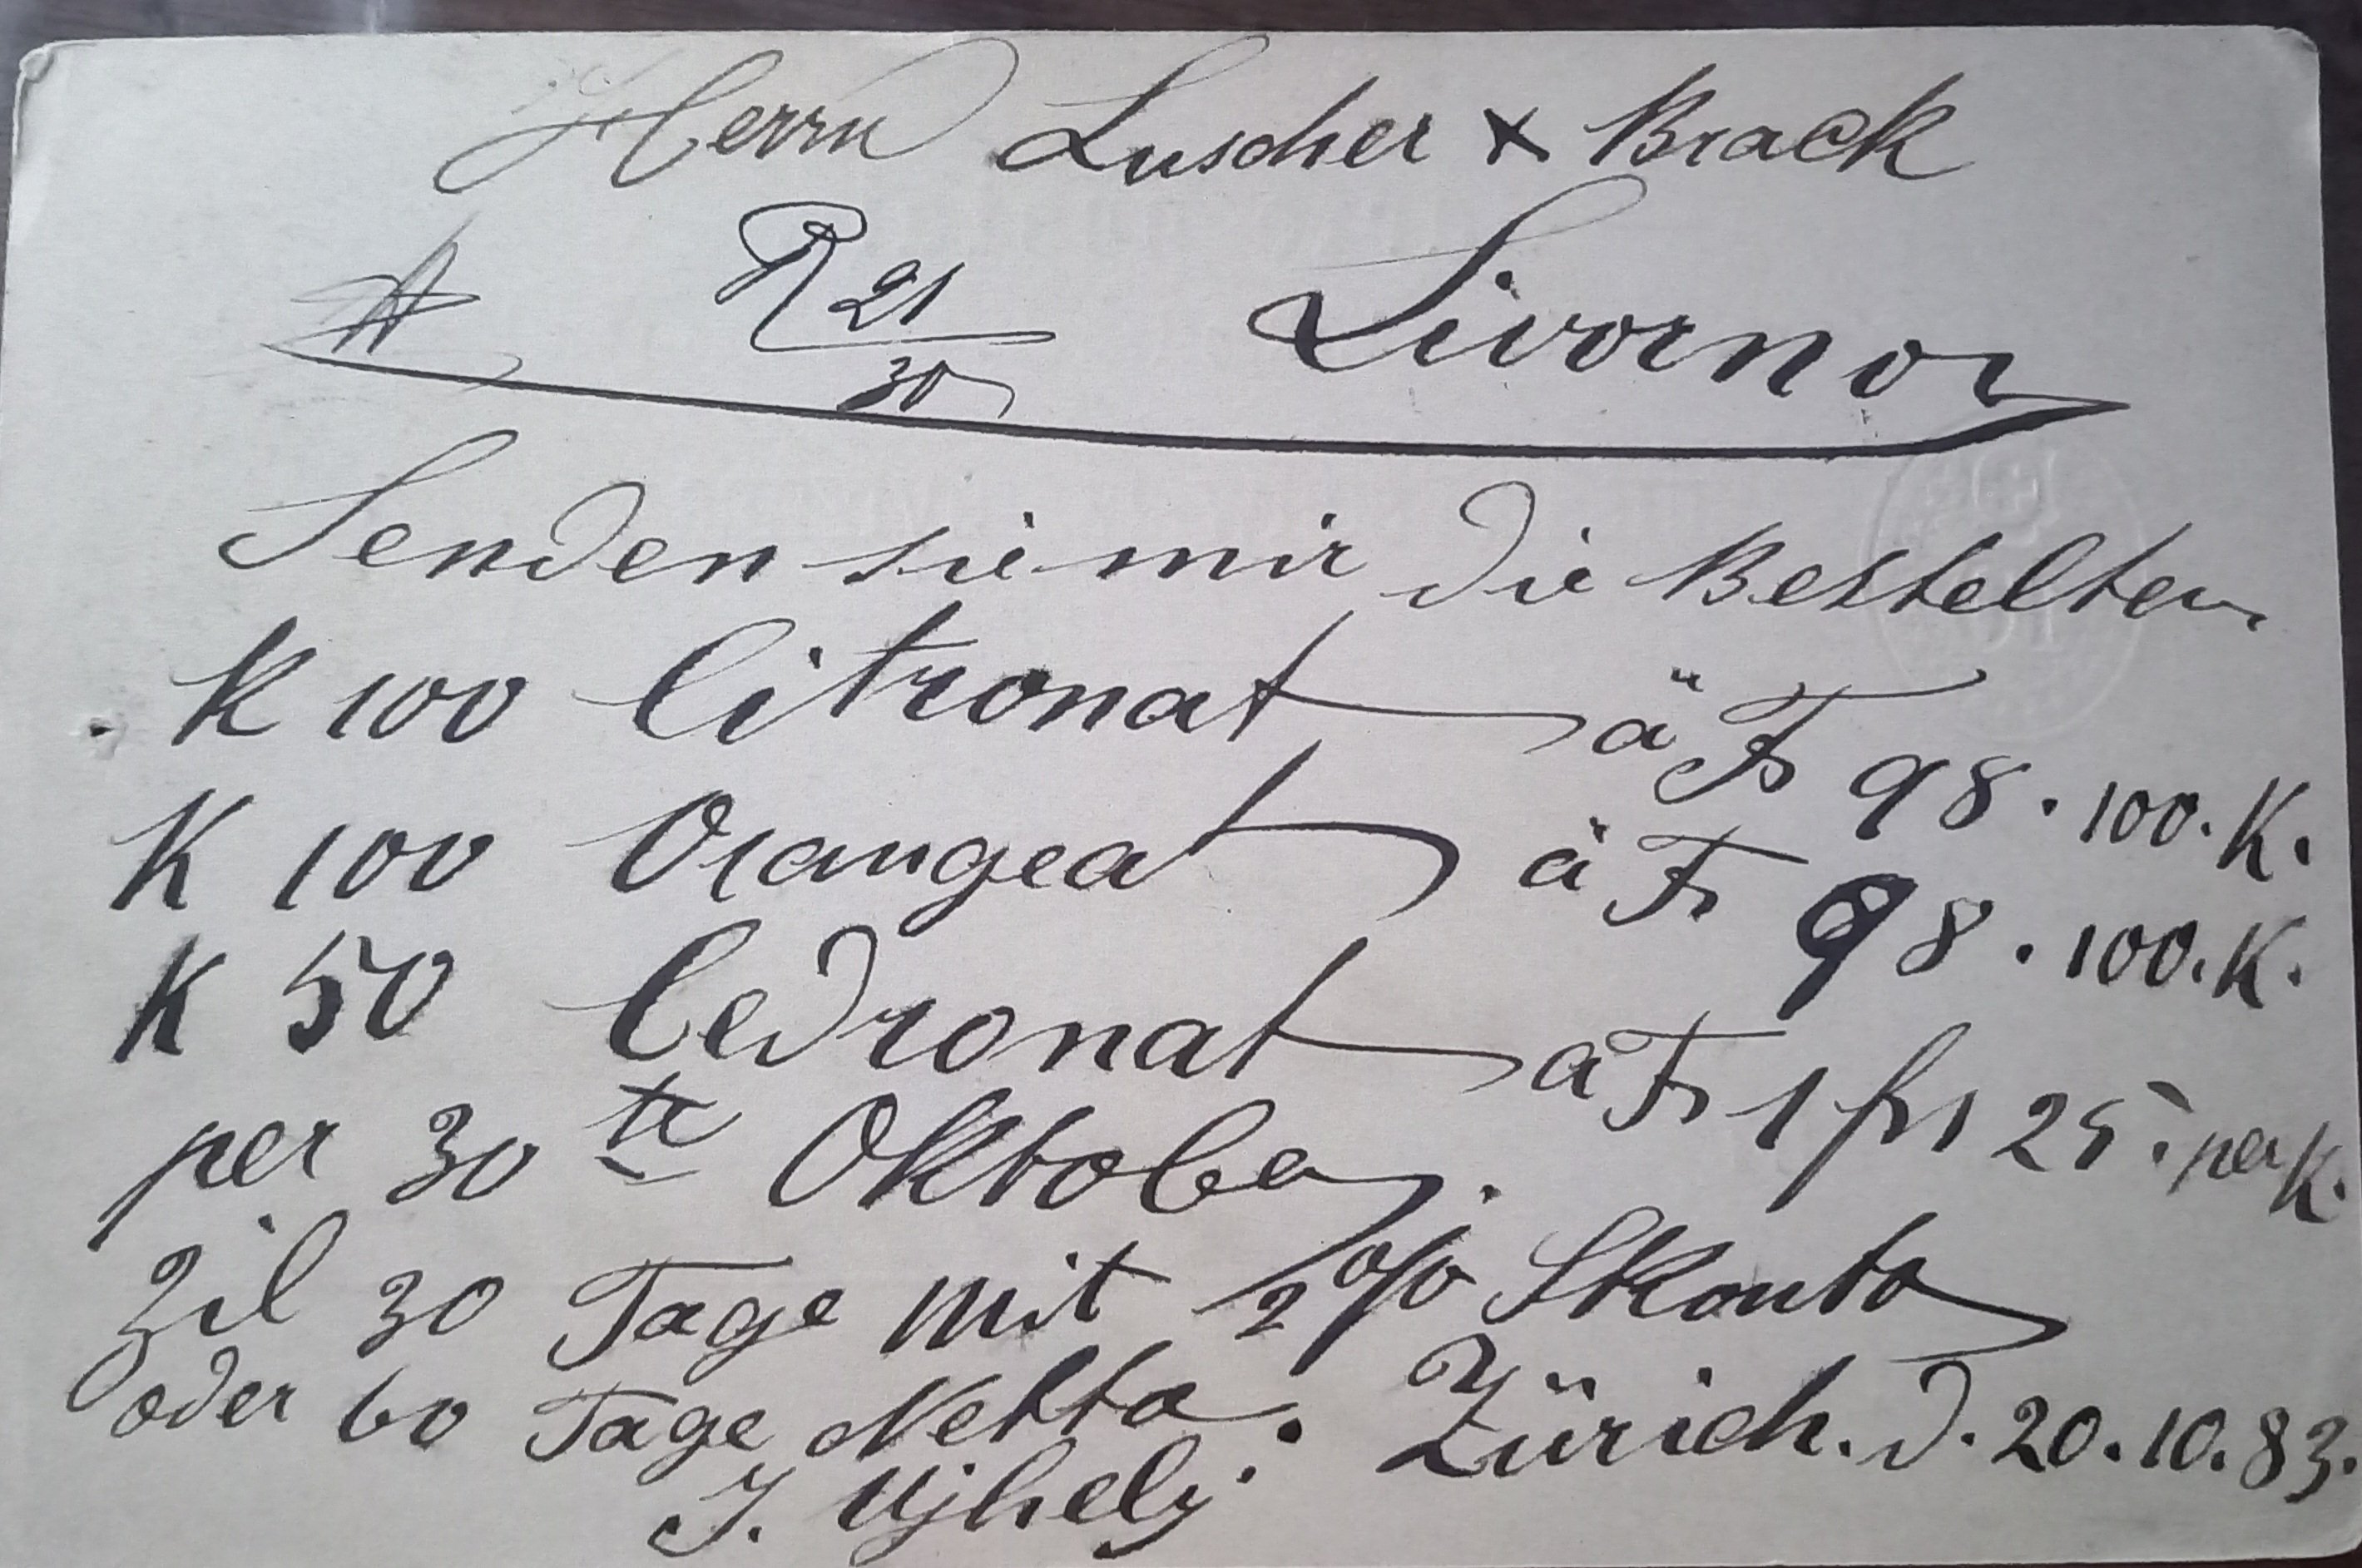 Herrn Luscher & Brack
R 21/30 Livorno
Senden sie mir die Bestelten
K 100 Citronat à Fr 98. 100. K.
K 100 Orangeat à Fr 98. 100. K.
K 50 Cedronat à Fr 1 frs 25. per K.
per 30te Oktober.
Zil 30 Tage mit 2% Skonto
oder 60 Tage Netto. Zürich. d. 20. 10. 83.
J. Ujhely